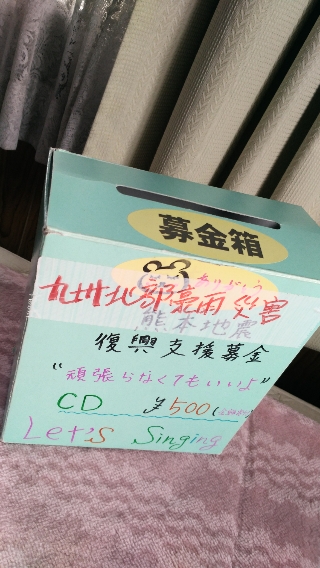 募金箱
ありがとう
九州北部豪雨災害
熊本地震
復興支援募金
"頑張らなくてもいいよ"
CD ¥500(
Let's Singing